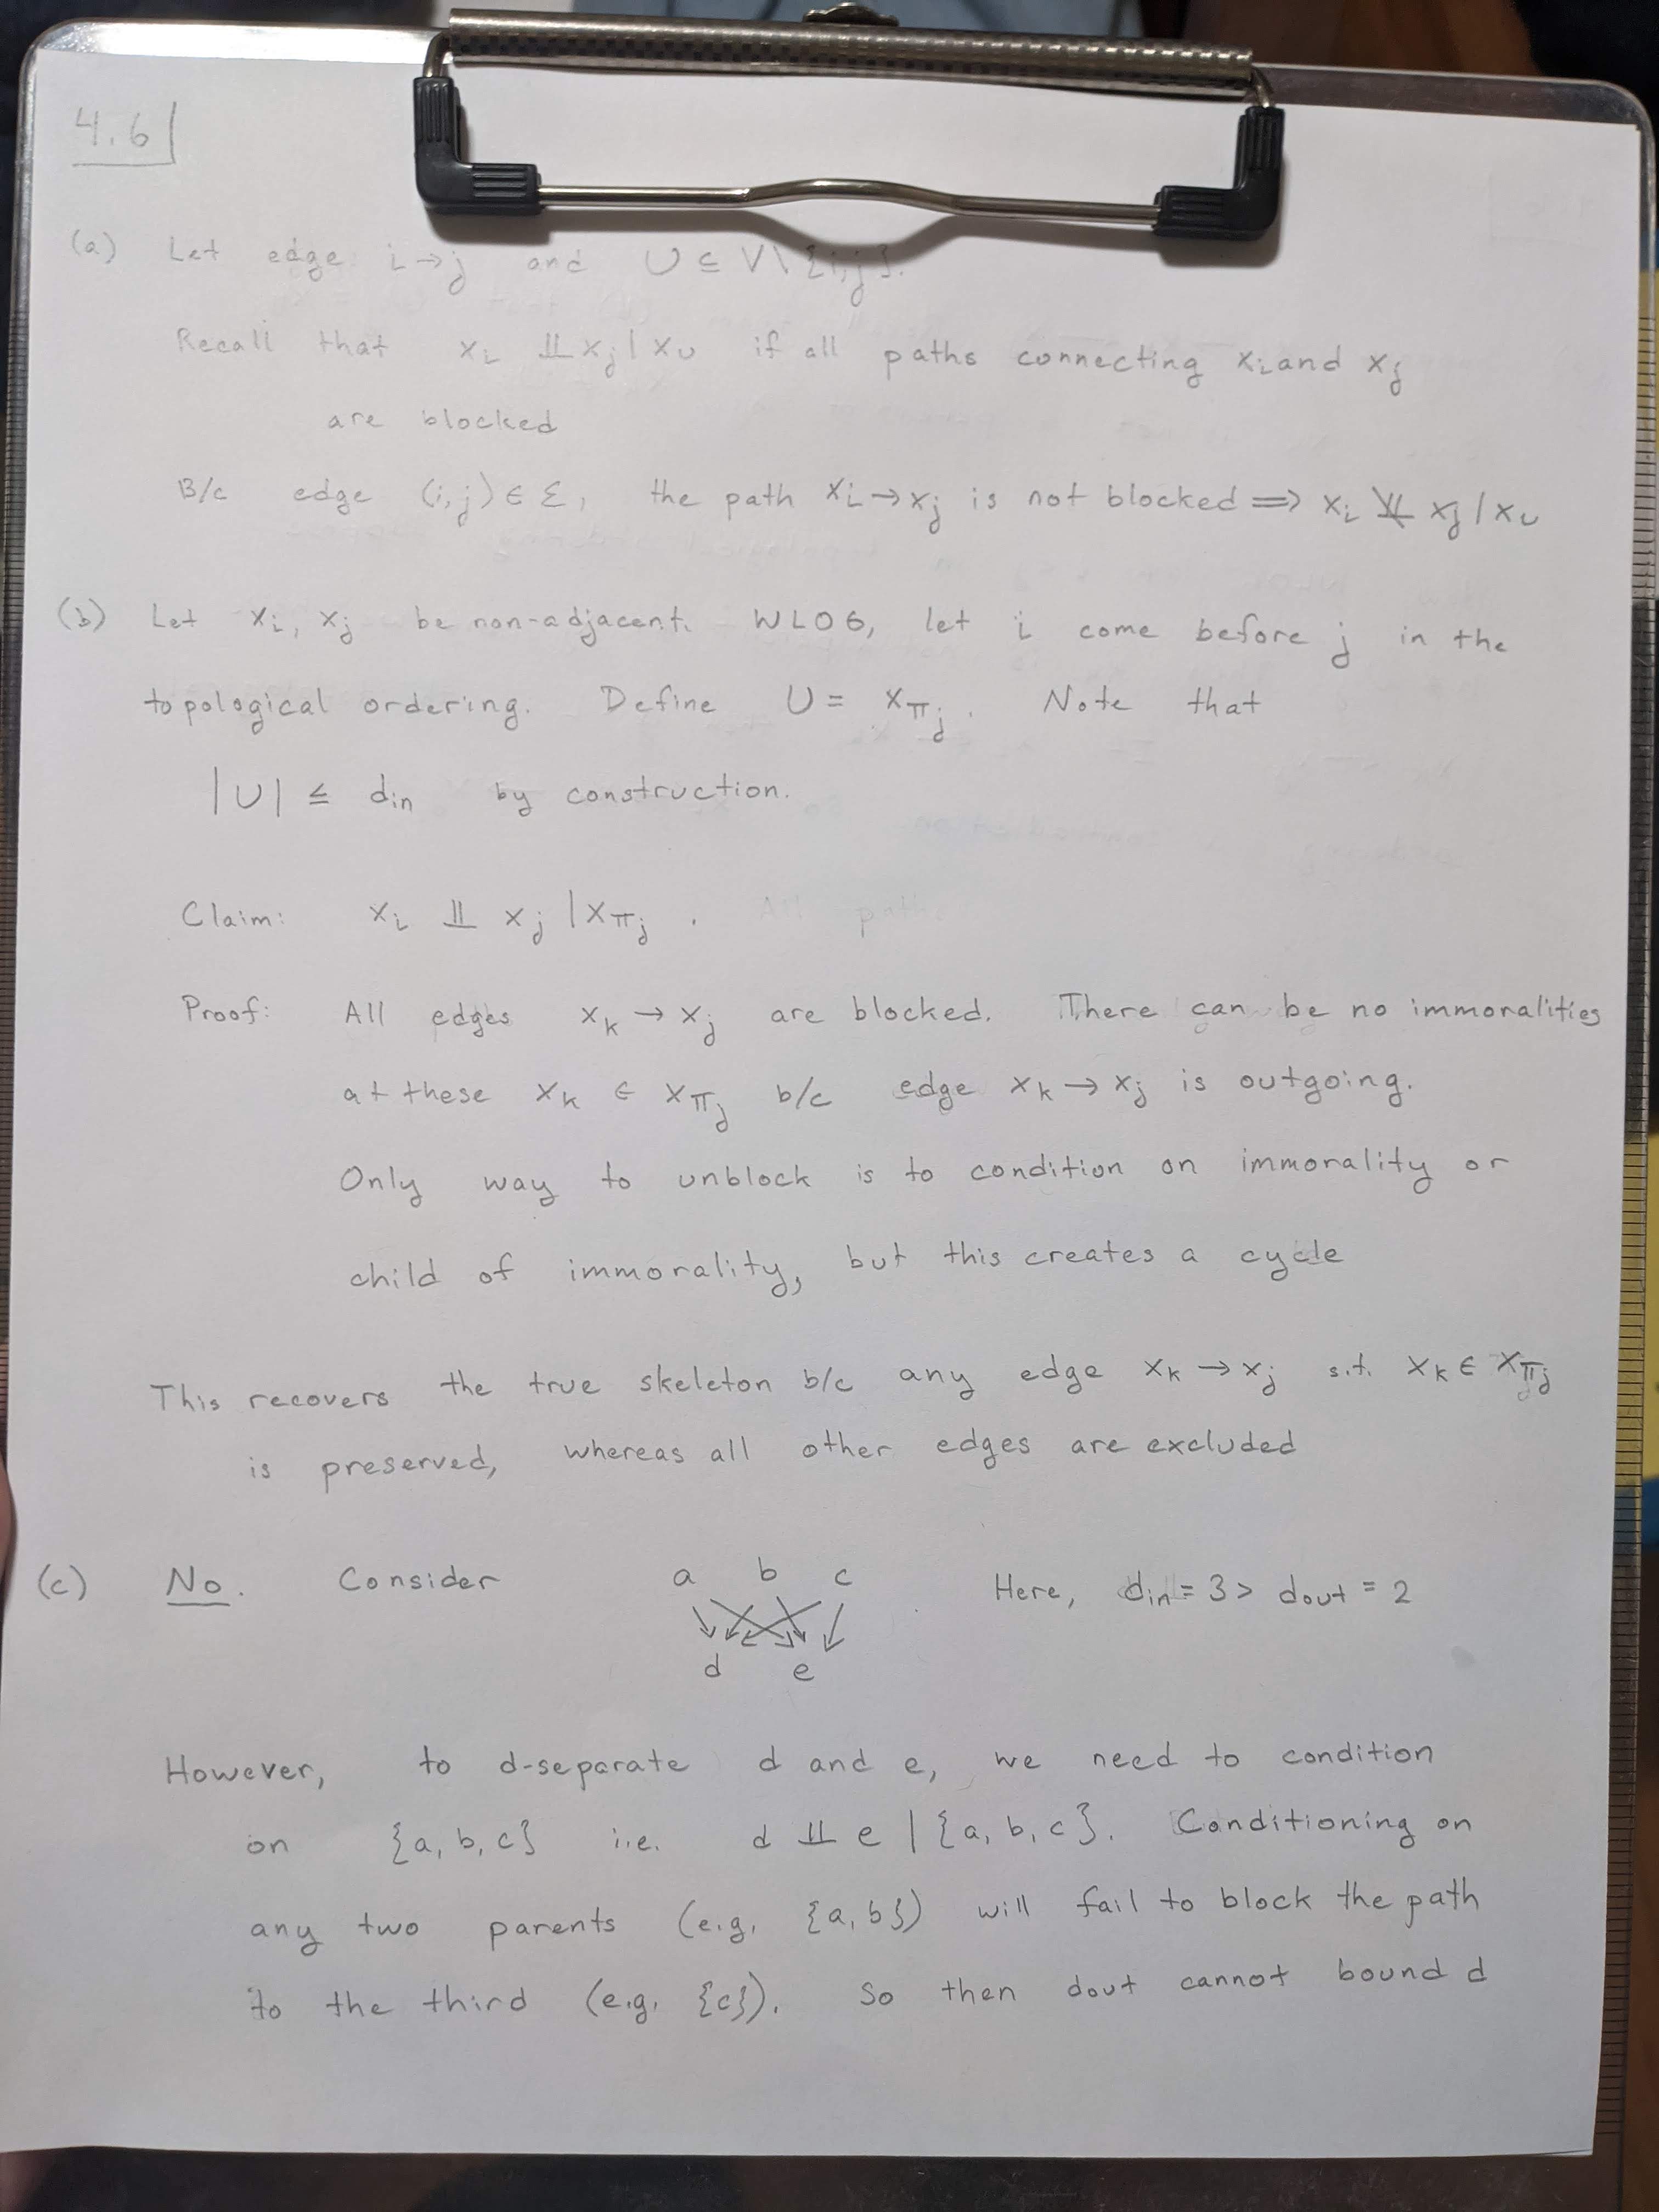 4.6
(a) Let edge i→j and U ⊆ V\{i,j}.
Recall that xᵢ ⫫ xⱼ | x_U if all paths connecting xᵢ and xⱼ
are blocked
B/c edge (i,j) ∈ Ɛ, the path xᵢ→xⱼ is not blocked ⟹ xᵢ ⫫̸ xⱼ | x_U
(b) Let xᵢ, xⱼ be non-adjacent. WLOG, let i come before j in the
topological ordering. Define U = x_πⱼ. Note that
|U| ≤ din by construction.
Claim: xᵢ ⫫ xⱼ | x_πⱼ.
Proof: All edges xₖ → xⱼ are blocked. There can be no immoralities
at these xₖ ∈ x_πⱼ b/c edge xₖ → xⱼ is outgoing.
Only way to unblock is to condition on immorality or
child of immorality, but this creates a cycle
This recovers the true skeleton b/c any edge xₖ → xⱼ s.t. xₖ ∈ x_πⱼ
is preserved, whereas all other edges are excluded
(c) No. Consider a b c Here, din = 3 > dout = 2
d e
However, to d-separate d and e, we need to condition
on {a, b, c} i.e. d ⫫ e | {a, b, c}. Conditioning on
any two parents (e.g. {a, b}) will fail to block the path
to the third (e.g. {c}). So then dout cannot bound d